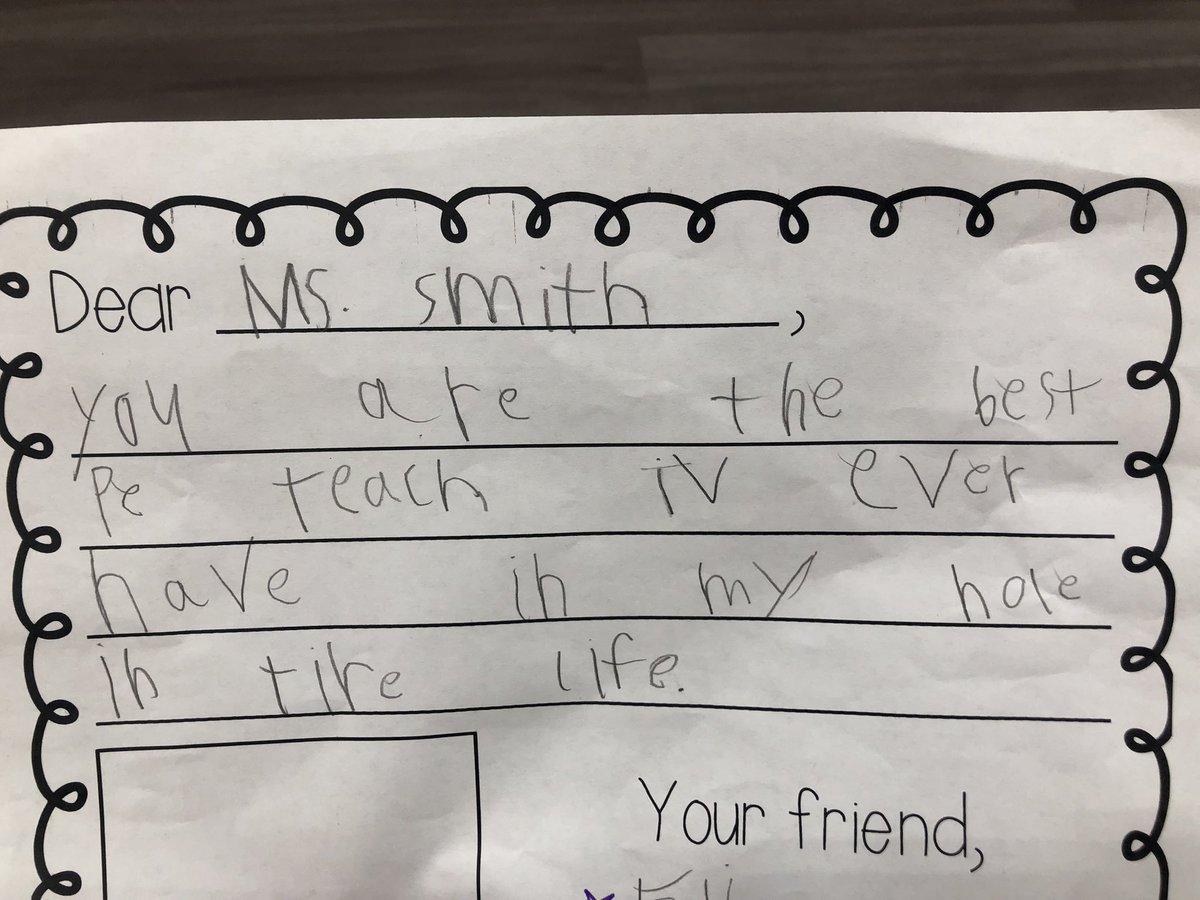 Dear Ms. smith,
you are the best
Pe teach iv ever
have in my hole
in tire life.
Your friend,